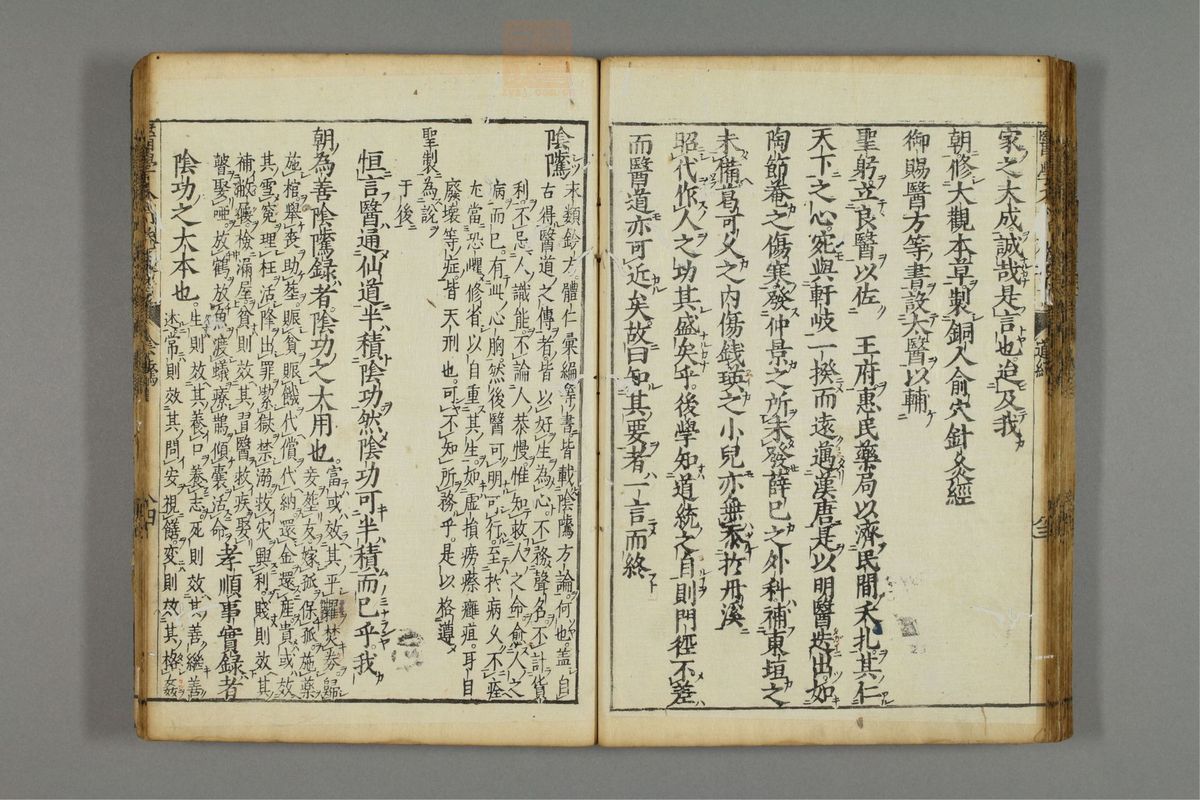 家之大成誠哉是言也迨及我
朝修大觀本草製銅人俞穴針灸經
御賜醫方等書設大醫以輔
聖躬立良醫以佐 王府惠民藥局以濟民間夭札其仁
天下之心宛與軒岐一揆而遠邁漢唐是以明醫迭出如
陶節菴之傷寒發仲景之所未發薛已之外科補東垣之
未備葛可久之內傷錢瑛之小兒亦無忝於丹溪
昭代作人之功其盛矣乎後學知道統之自則門徑不差
而醫道亦可近矣故曰知其要者一言而終
陰騭
末類鈴方體仁彙編等書皆載陰騭方論何也盖自
古得醫道之傳者皆以好生為心不務聲名不計貨
利不忌人識能不論人恭慢惟知救人之命愈人之
病而已有此心胸然後醫可明可行至於病久不痊
尢當恐懼修省以自重其生如虛損癆瘵癰疽耳目
廢壞等症皆天刑也可不知所務乎是以格遵
聖製為說
于後
恒言醫通仙道半積陰功然陰功可半積而已乎我
朝為善陰騭錄者陰功之大用也
富或效其平糶焚券歸
妾塟友嫁孤保孤施藥
施棺舉喪助塟賑貧賑饑代償代納還金還産貴或效
其雪冤理枉活降出罪絮獄禁溺救灾興利賤則效其
補敝襪檢漏屋貧則效其習醫救疾娶
瞽娶啞放鶴放魚渡蟻療鵲傾囊活命
孝順事實錄者
陰功之大本也
生則效其養口養志死則效其善繼善
述常則效其問安視饍變則效其格姦